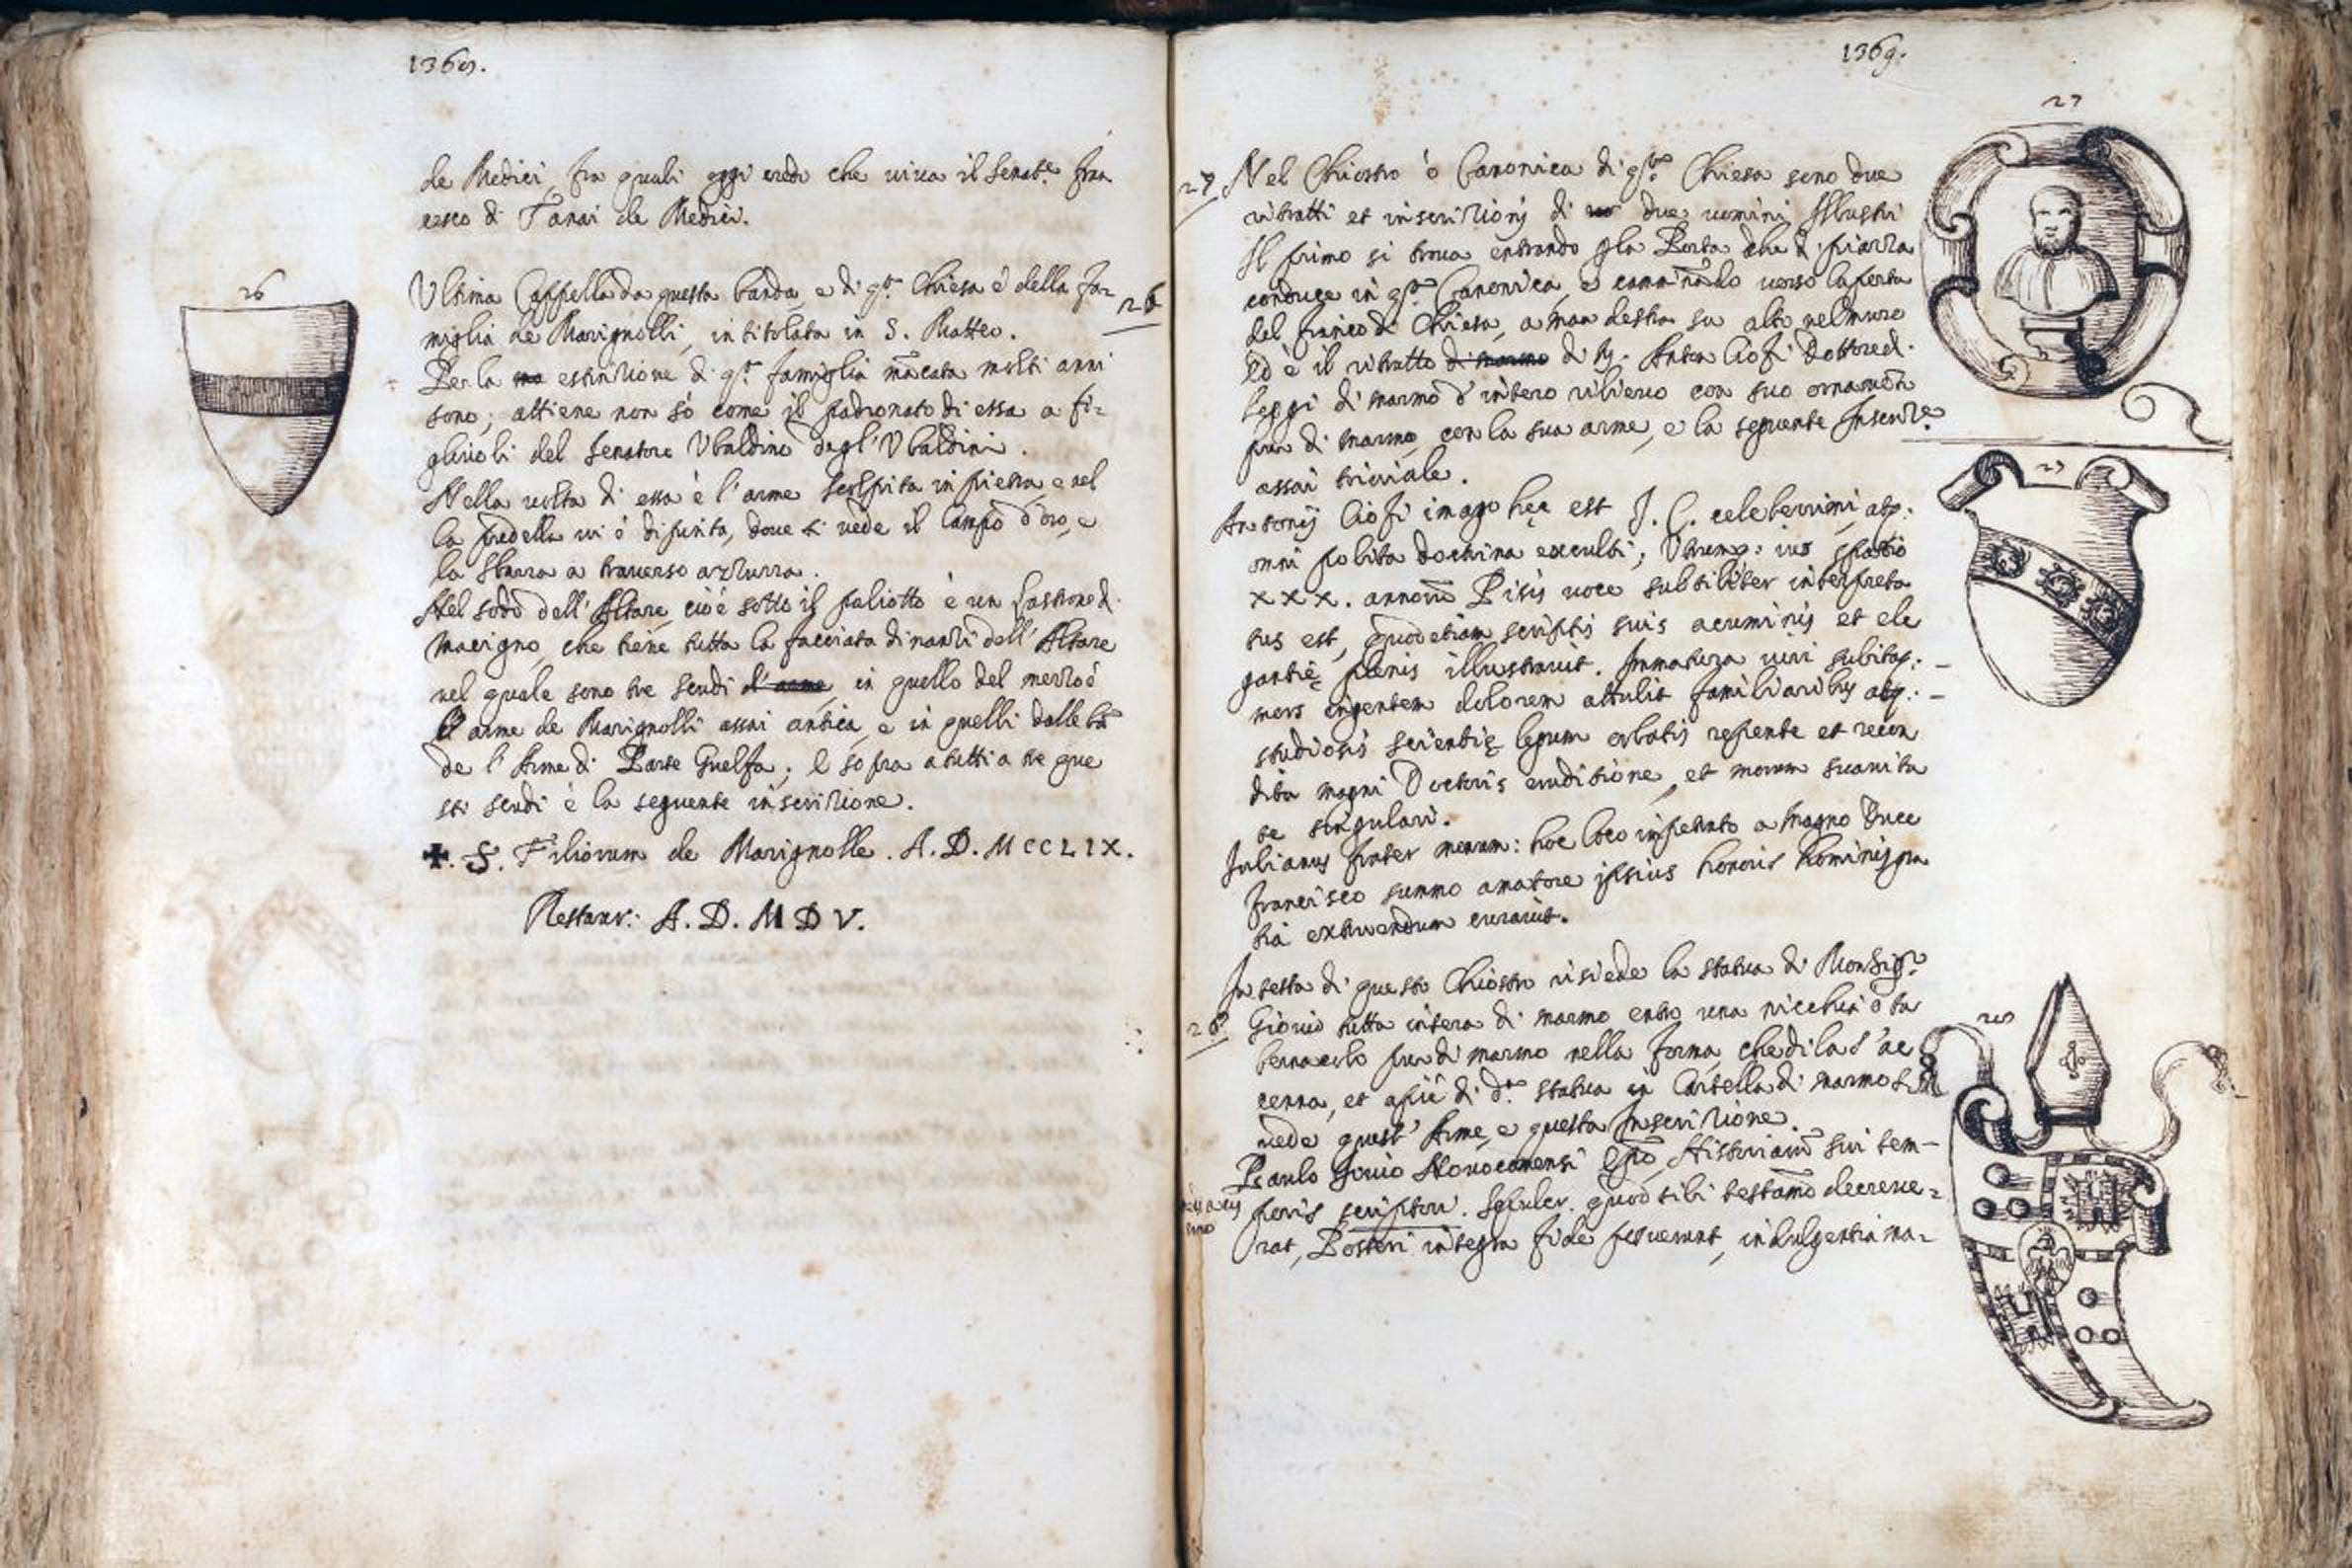 1368.
de Medici, fra quali oggi credo che viva il Senat.e Fran
cesco di Tanai de Medici.
26
Ultima Cappella da questa banda, e di q.ta Chiesa è della fa=
26
miglia de Marignolli, intitolata in S. Matteo.
Per la estinzione di q.ta famiglia mãcata molti anni
sono; attiene non sò come il padronato di essa a fi=
gliuoli del Senatore Ubaldino degl'Ubaldini.
Nella volta di essa è l'arme scolpita in pietra, e nel
la predella vi è dipinta, dove si vede il Campo d'oro, e
la sbarra a traverso azzurra.
Nel sodo dell'Altare, cioè sotto il paliotto è un lastrone d.
macigno, che tiene tutta la facciata dinanzi dell'Altare
nel quale sono tre scudi d'arme, in quello del mezzo è
l'arme de Marignolli assai antica, e in quelli dalle bã
de l'Arme di Parte Guelfa; e sopra a tutti a tre que
sti scudi è la seguente inscrizione.
✠. S. Filiorum de Marignolle. A. D. M CC L I X.
Restaur: A. D. M D V.
1369.
27
27 Nel Chiostro ò Canonica di q.ta Chiesa sono due
ritratti et inscrizioni di due uomini Illustri
Il primo si trova entrando p la Porta che d. piazza
conduce in q.ta Canonica, e camminãdo verso la porta
del fianco di Chiesa, a man destra su alto nel muro
ed è il ritratto di marmo di M. Anton Ciofi Dottore d.
leggi di marmo d'intero rilievo con suo ornamẽto
pur di marmo, con la sua arme, e la seguente Inscriz.e
assai triviale.
27
Antonij Ciofi imago hęc est J. C. celeberrimi, atq:
omni polita doctrina exculti; Utrumq: ius spatio
x x x. annorũ Pisis voce subtiliter interpreta
tus est, quod etiam scriptis suis acuminis et ele
gantię plenis illustravit. Immatura viri subitaq: _
mors ingentem dolorem attulit familiaribus atq: _
studiosis scientię legum orbatis repente et recon
dita magni Doctoris eruditione, et morum suavita
te singulari.
Julianus frater hoc loco impetrato a Magno Duce
Francisco summo amatore ipsius honoris hominis gra
tia extruendum curavit.
In testa di questo Chiostro risiede la statua di Monsig.r
28 Giovio tutta intera di marmo entro una nicchia ò ta
28
bernacolo pur di marmo nella forma, che di la s'ac
cenna, et a piè di d.ta statua in Cartella di marmo si
vede quest'Arme, e questa Inscrizione.
Paulo Jovio Novocomensi Epõ, Historiarũ sui tem-
poris scriptori. Sepulcr. quod sibi testamẽo decreve=
rat, Posteri integra fide posuerunt, indulgentia ma=